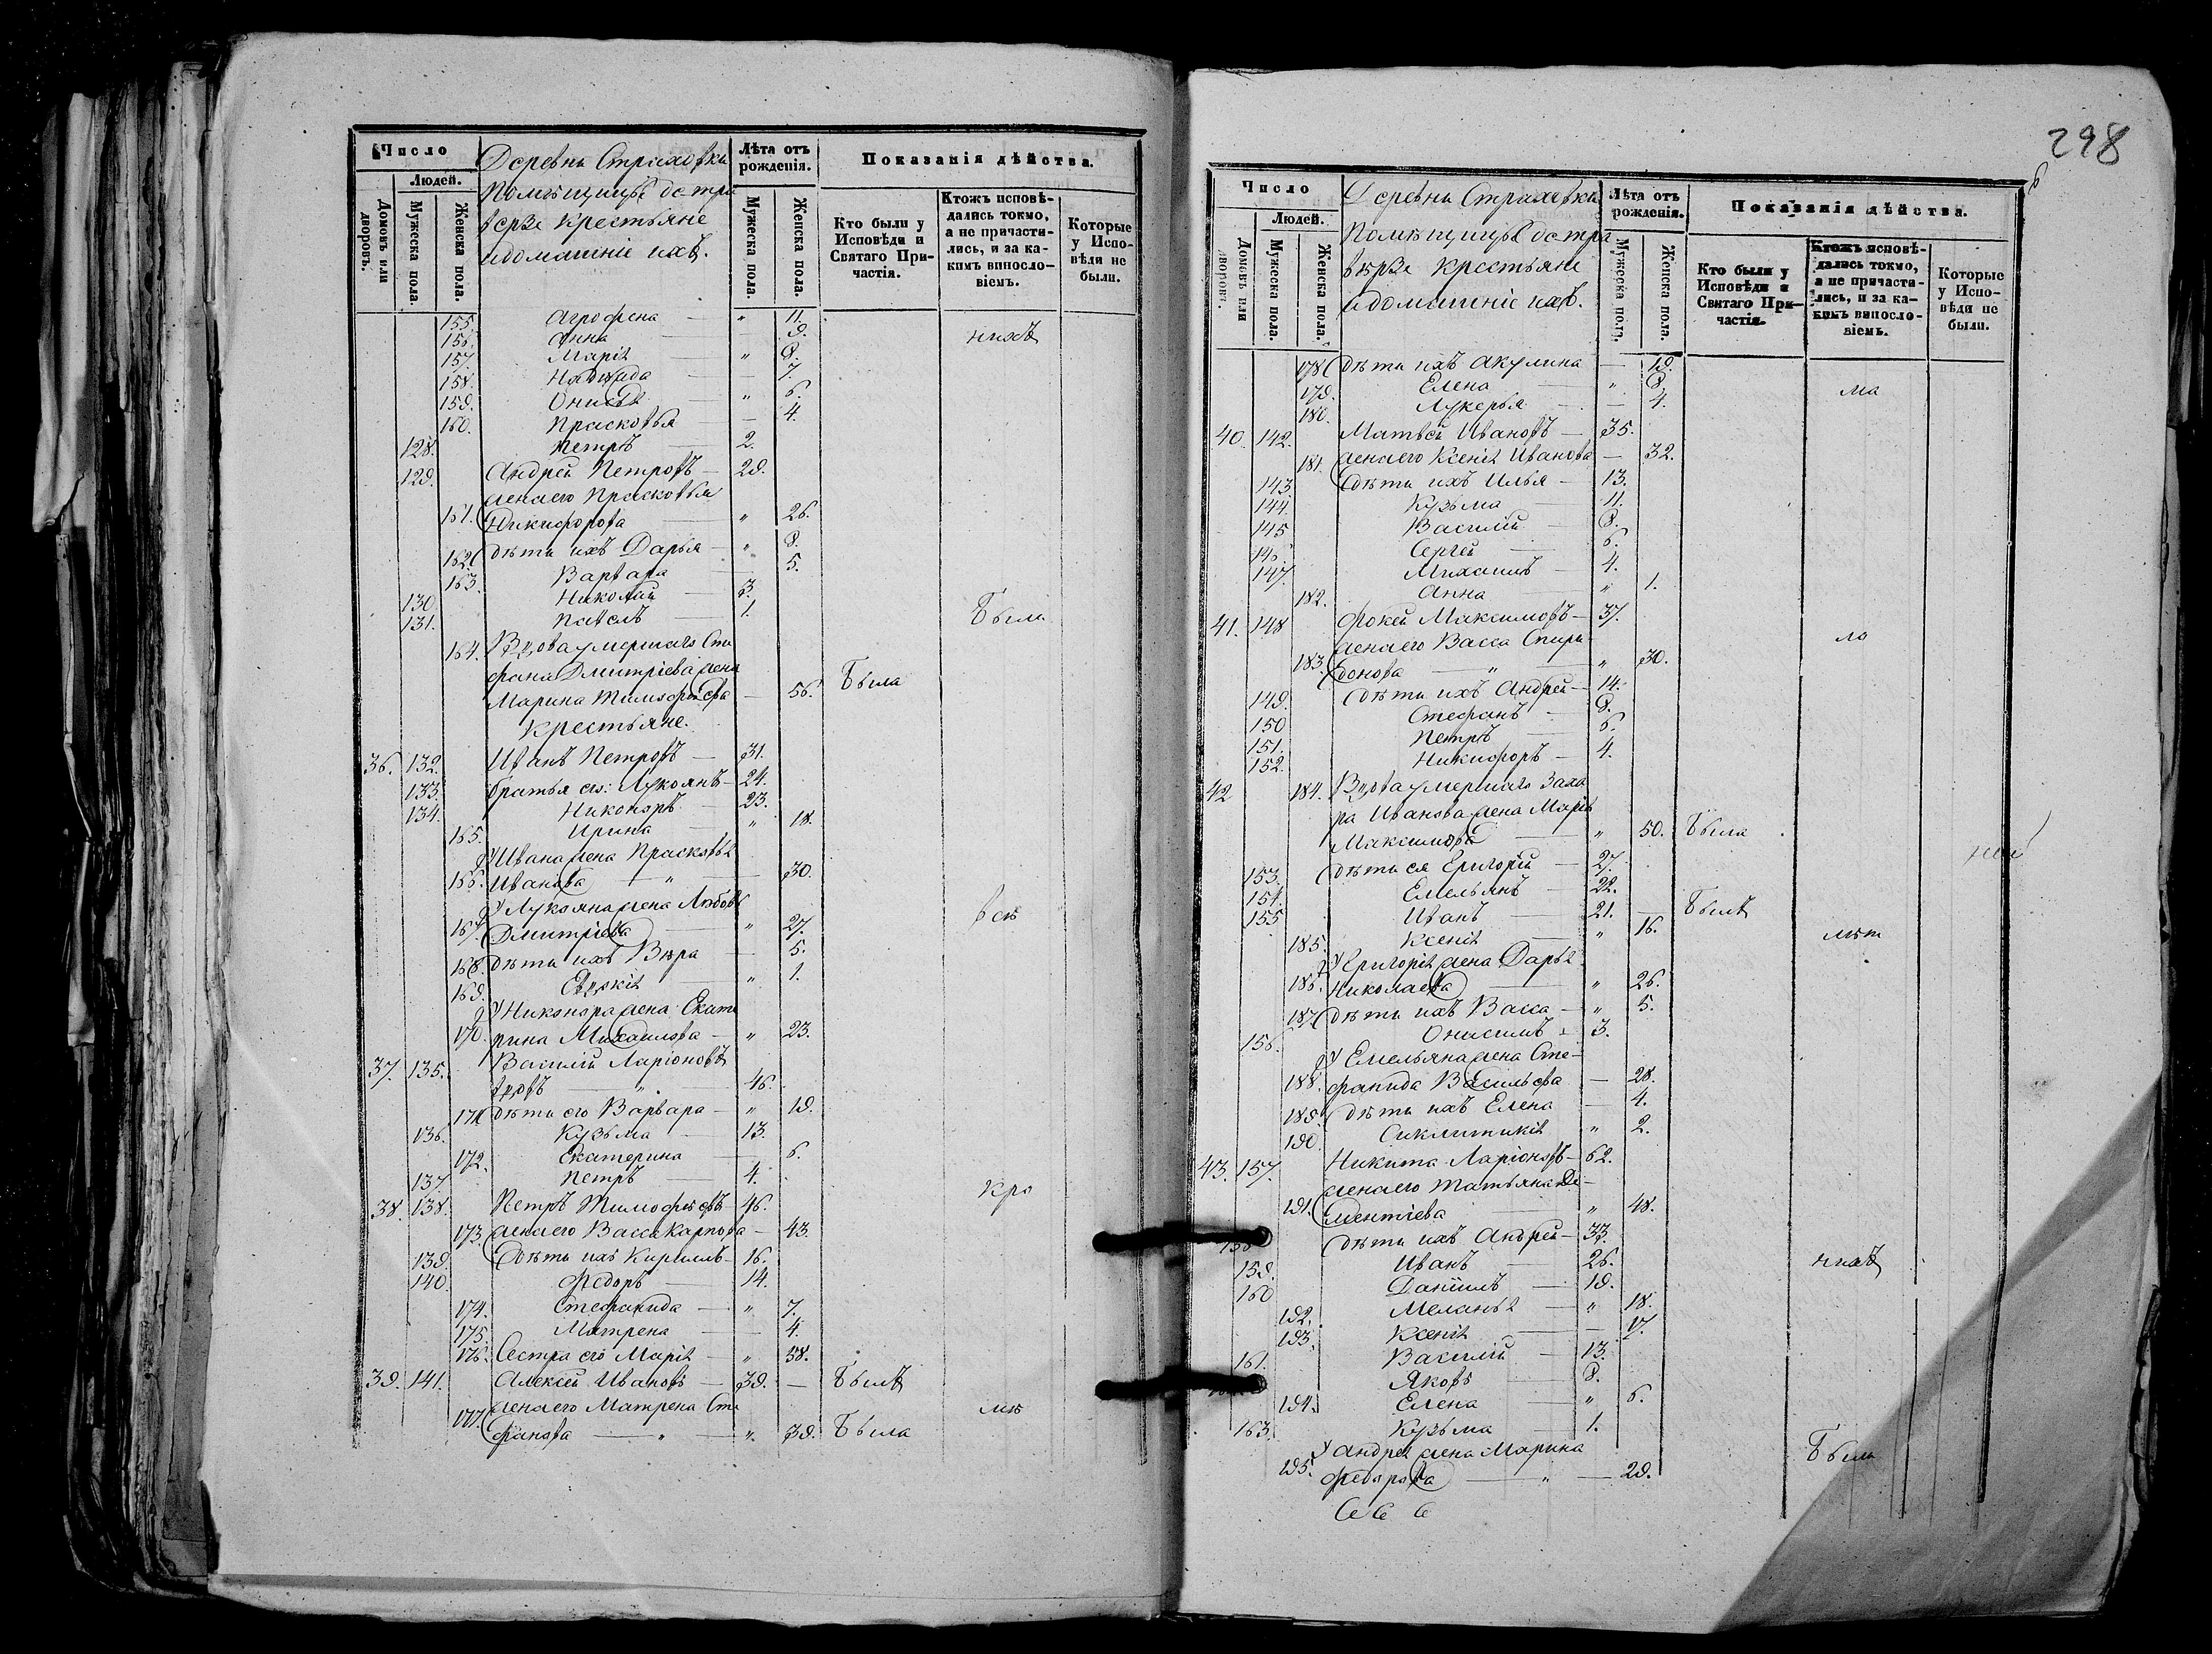 Число
Людей.
Домовъ или дворовъ.
Мужеска пола.
Женска пола.
Деревни Страховки
Помѣщицы
крестьяне
и домашніе ихъ.
Лѣта отъ рожденія.
Мужеска пола.
Женска пола.
Показанія дѣйства.
Кто были у Исповѣди и Святаго При-
частія.
Ктожъ исповѣ-
дались токмо,
а не причасти-
лись, и за ка-
кимъ винослo-
віемъ.
Которые
у Испо-
вѣди не
были.
155. Агрофена — " 11.
156. Анна — 9.
157. Марія — " 8.
158. — 7.
159. — " 6.
160. Прасковья — 4.
128. Петръ — 2.
129. Андрей Петровъ — 29.
жена его Прасковья
161. Никифорова — " 26.
162. дѣти ихъ Дарья — " 8.
163. Варвара — 5.
130. Николай — 3.
131. Павелъ — 1.
164. Вдова умершаго Сте
фана Дмитріева жена
Марина Тимофеева — 56. Была
Крестьяне.
36. 132. Иванъ Петровъ — 31.
133. братья его: Лукоянъ — 24.
134. Никоноръ — 23.
165. Ирина — " 18.
У Ивана жена Прасковья
166. Иванова — " — 30.
У Лукояна жена Любовь
167. Дмитріева — " 27.
168. дѣти ихъ Вѣра — 5.
169. Евдокія — " 1.
У Никонора жена Екате
170. рина Михаилова — " 23.
37. 135. Василій Ларіоновъ
вдовъ " — 46.
171. дѣти его Варвара — " 19.
136. Кузьма — 13.
172. Екатерина — 6.
137. Петръ — 4.
38. 138. Петръ Тимофеевъ — 46.
173. жена его Васса Карпова — 43.
139. Дѣти ихъ Кириллъ — 16.
140. Федоръ — 14.
174. Стефанида — " 7.
175. Матрена — 4.
176. Сестра его Марія — " 38.
39. 141. Алексей Ивановъ — 39. — Былъ
жена его Матрена Сте
177. фанова — " — " 39. Была
нихъ
Были
всѣ
кро
мѣ
298
Число
Людей.
Домовъ или дворовъ.
Мужеска пола.
Женска пола.
Деревни Страховки
Помѣщицы
крестьяне
и домашніе ихъ.
Лѣта отъ рожденія.
Мужеска пола.
Женска пола.
Показанія дѣйства.
Кто были у Исповѣди и Святаго При-
частія.
Ктожъ исповѣ-
дались токмо,
а не причасти-
лись, и за ка-
кимъ винослo-
віемъ.
Которые
у Испо-
вѣди не
были.
178. дѣти ихъ Акулина — 19.
179. Елена — " 8.
180. Лукерья — 4.
40. 142. Матвей Ивановъ — 35.
181. жена его Ксенія Иванова — 32.
143. Дѣти ихъ Илья — 13.
144. Кузьма — 11.
145 Василій — 8.
146. Сергей — 6.
147. Михаилъ — 4.
182. Анна — " 1.
41. 148 Фокей Максимовъ — 37.
жена его Васса Спири
183. донова — " — " 30.
149. Дѣти ихъ Андрей — 14.
150 Стефанъ — 8.
151. Петръ — 6.
152. Никифоръ — 4.
42 184. Вдова умершаго Заха
ра Иванова жена Марія
Максимова — " 50. Была
153. дѣти ея Григорій — 27.
154. Емельянъ — 22.
155 Иванъ — 21. — Былъ
185. Ксенія — " 16.
У Григорія жена Дарья
186. Николаева — " 26.
187. дѣти ихъ Васса — " 5.
156. Онисимъ — 3.
У Емельяна жена Сте-
188. фанида Васильева — 28.
189. дѣти ихъ Елена — 4.
190. Сиклитикія " 2.
43. 157. Никита Ларіоновъ — 62.
жена его Татьяна Де-
191. ментіева — " 48.
158 дѣти ихъ Андрей — 33.
159. Иванъ — 26.
160 Даніилъ — 19.
192. Меланья — " 18.
193. Ксенія — 17.
161. Василій — 13.
Яковъ — 8.
194. Елена — " 6.
163. Кузьма — 1.
У Андрея жена Марина
195. Федорова — " — 29.
ма
ло
лѣт
нихъ
Были